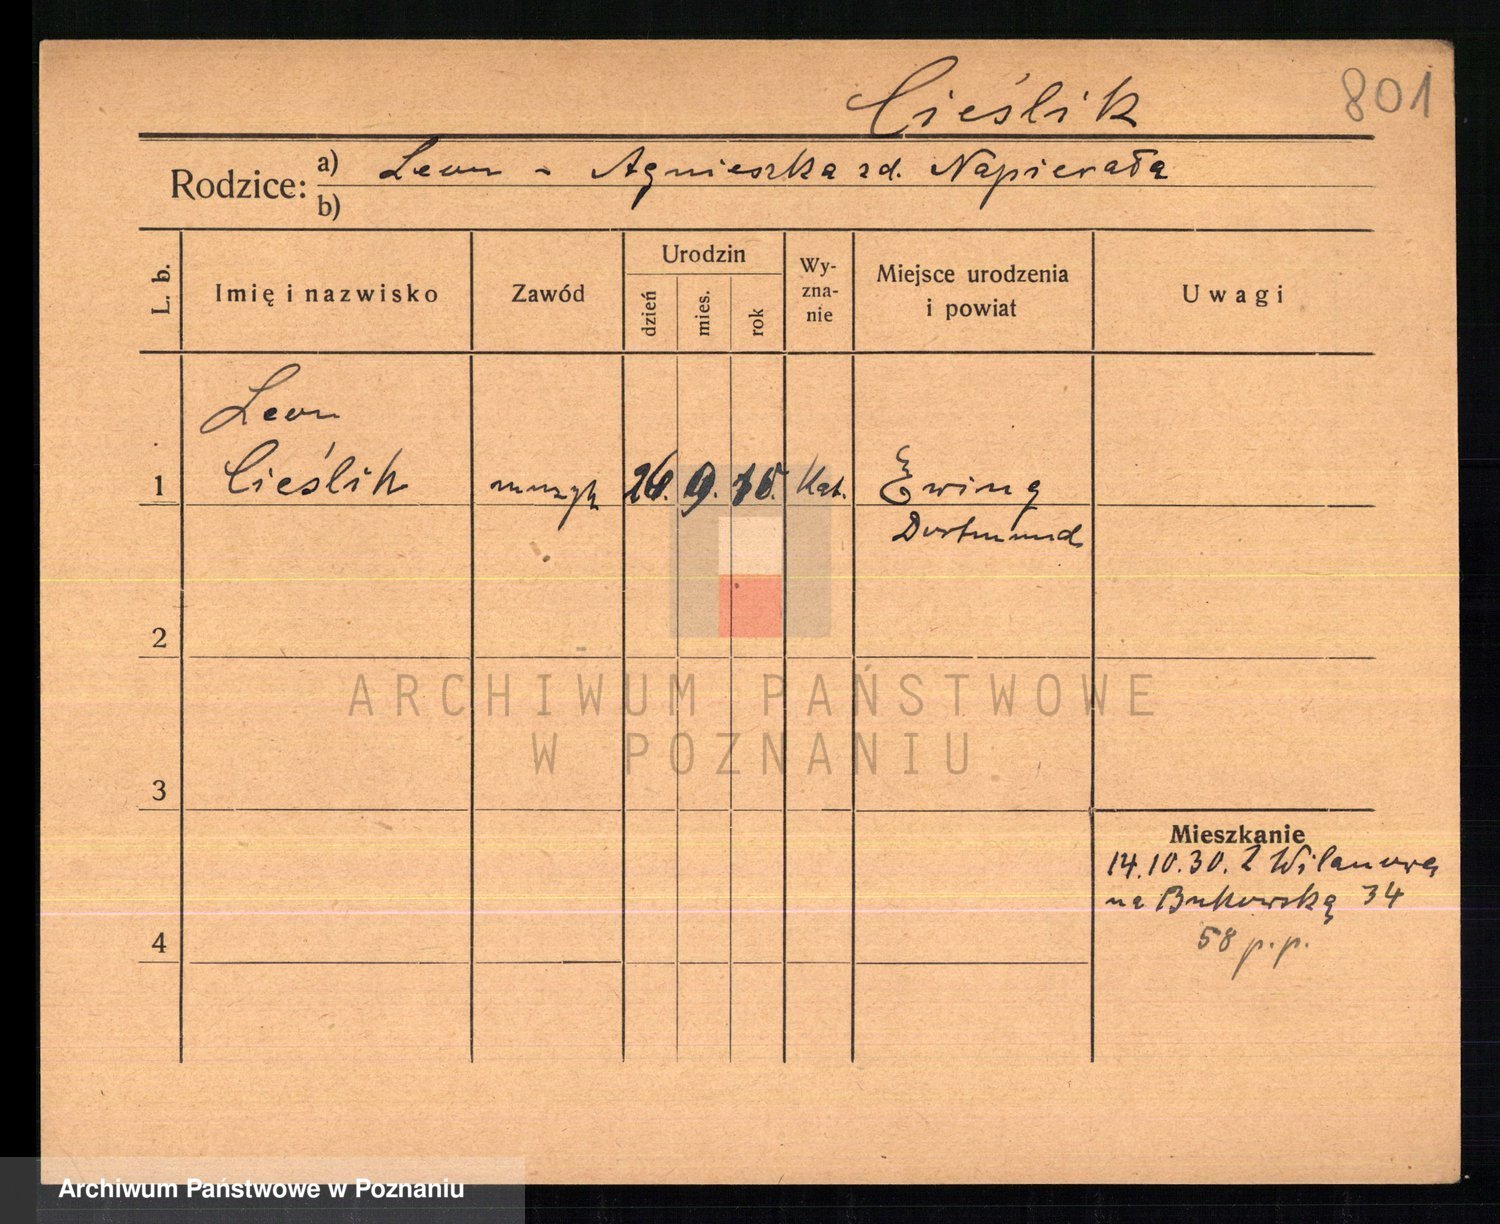 Cieślik
801
Rodzice:
a) Leon - Agnieszka zd. Napierała
b)
L. b.
Imię i nazwisko
Zawód
Urodzin
dzień
mies.
rok
Wy-
zna-
nie
Miejsce urodzenia
i powiat
Uwagi
Leon
1 Cieślik muzyk 9. Kat. Ewing
Dortmund
2
ARCHIWUM PAŃSTWOWE
W POZNANIU
3
Mieszkanie
14.10.30. Z Wilanowa
na Bukowską 34
58 p.p.
4
Archiwum Państwowe w Poznaniu